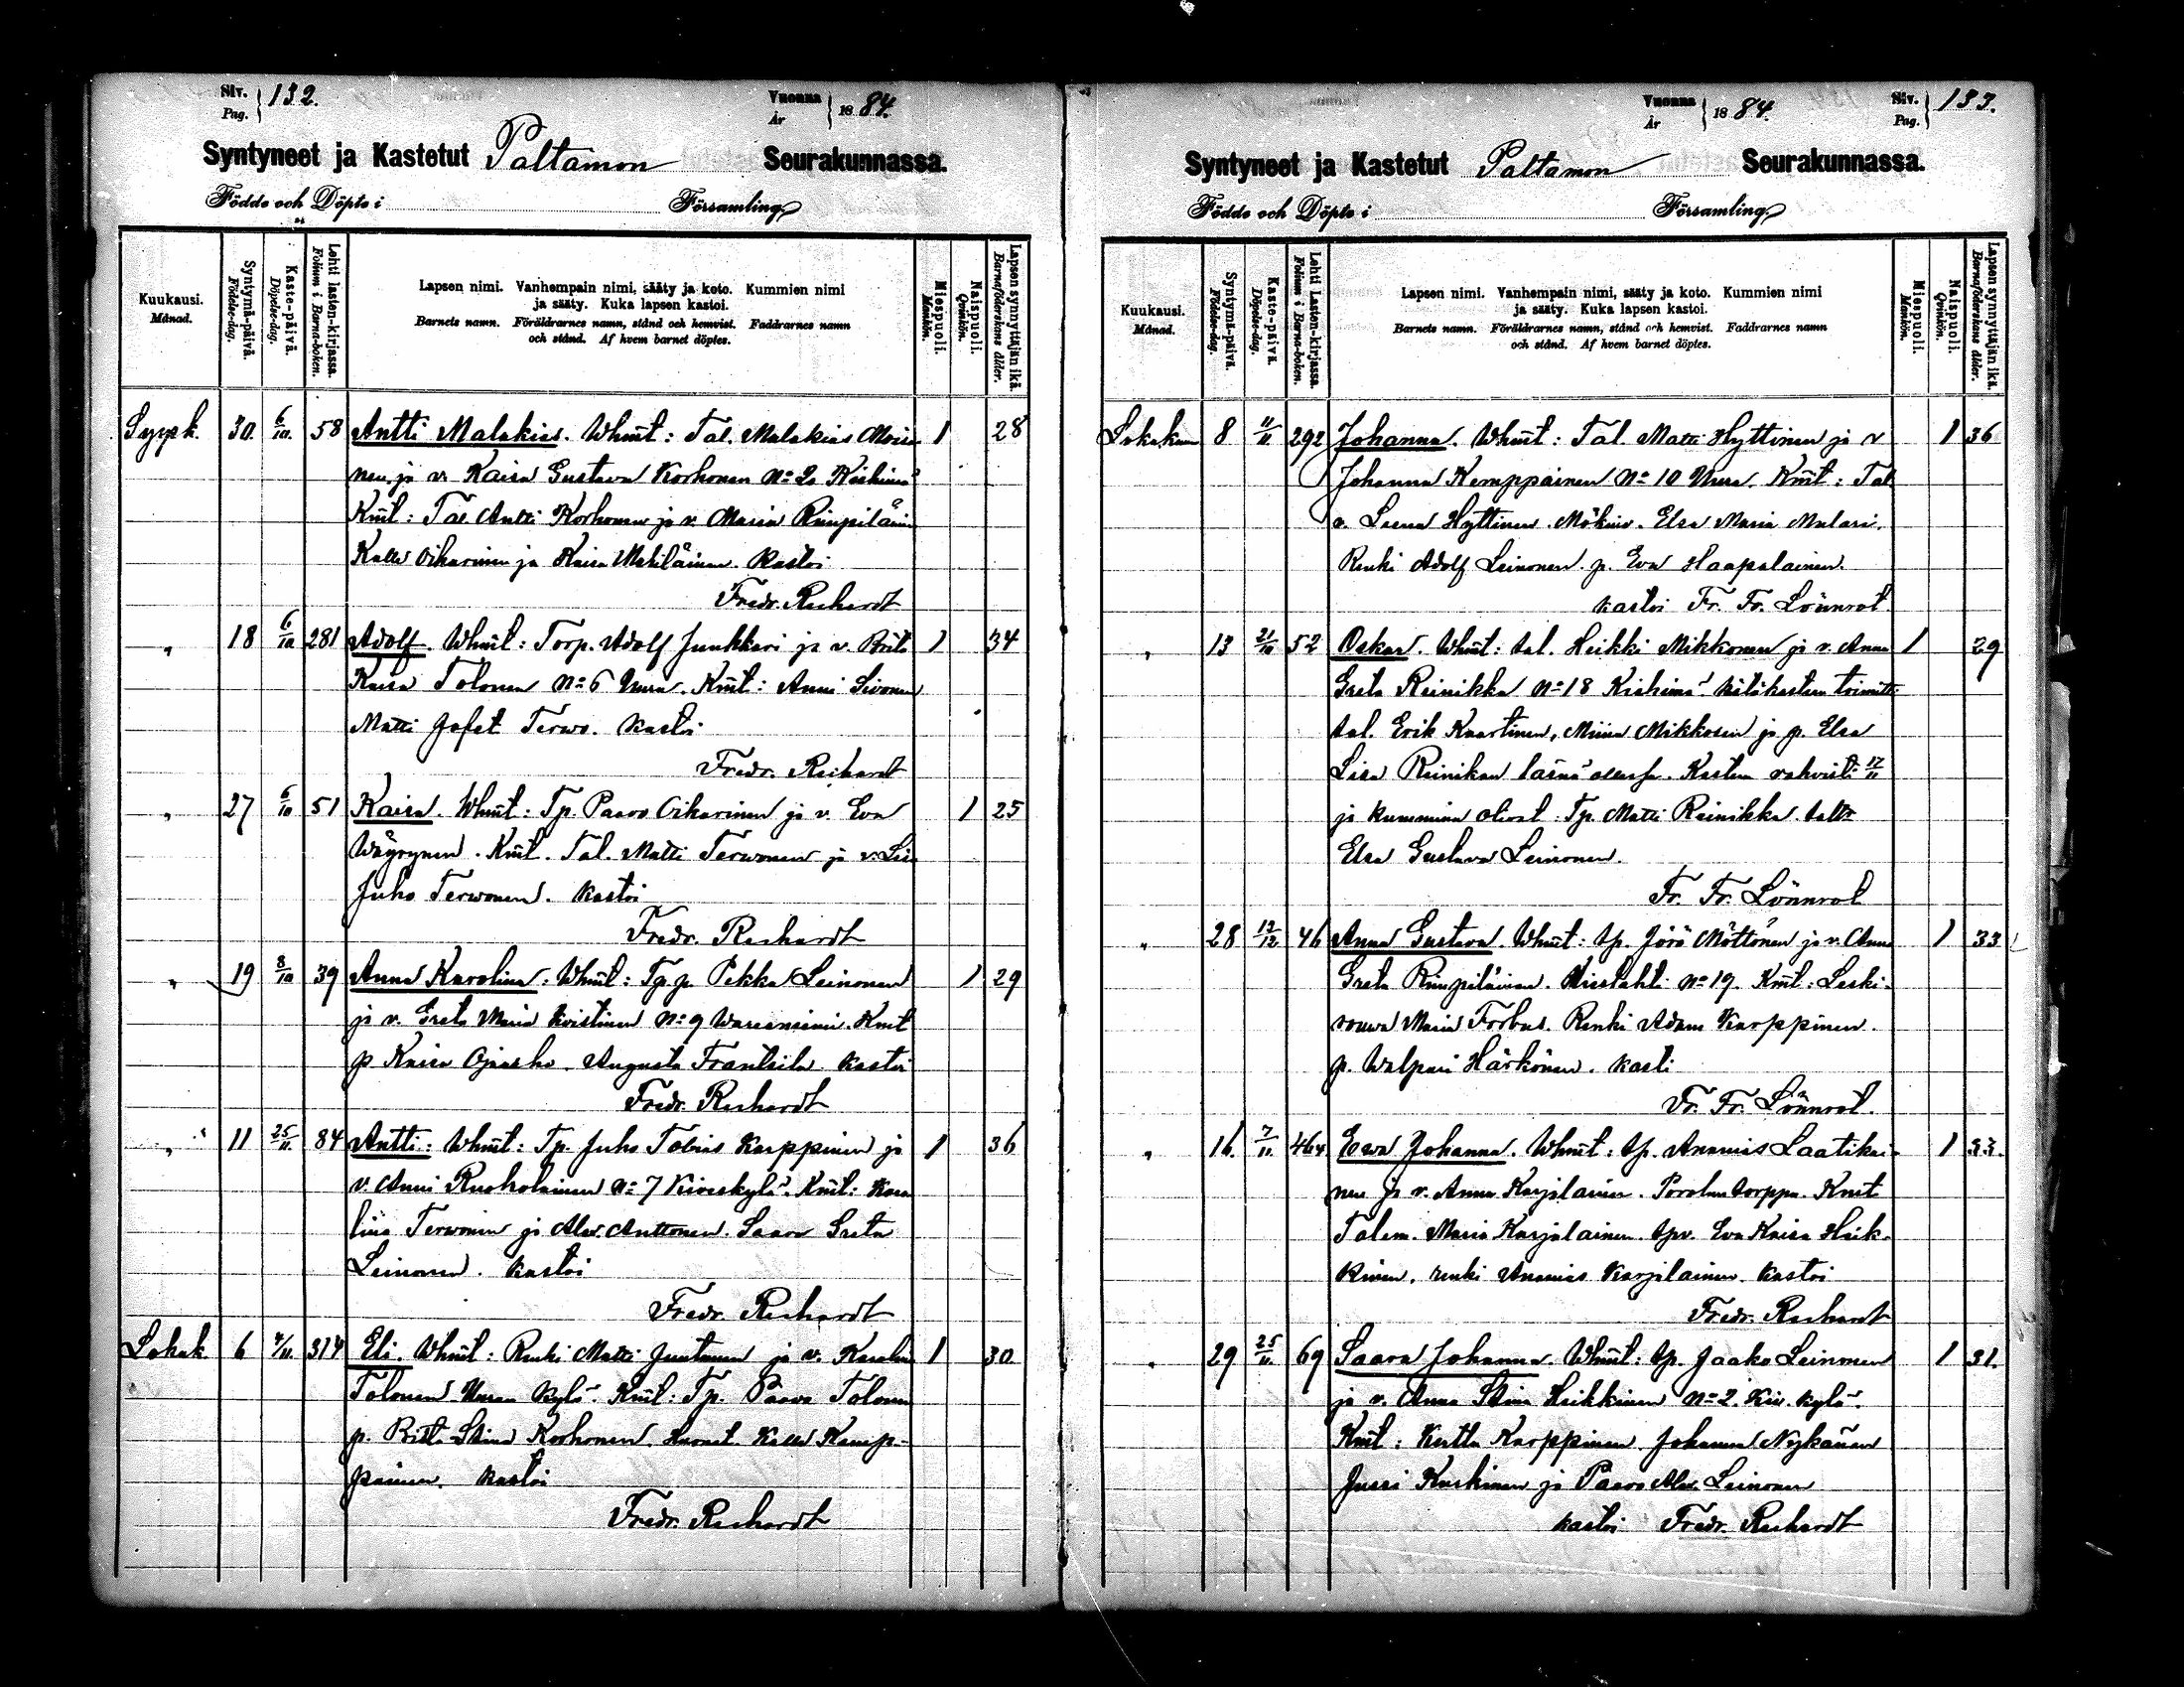 Siv. Pag. 132.
Vuonna År 1884.
Syntyneet ja Kastetut Paltamon Seurakunnassa.
Födde och Döpte i Församling
Kuukausi. Månad.
Syntymä-päivä. Födelse-dag.
Kaste-päivä. Döpelse-dag.
Lehti lasten-kirjassa. Folium i Barna-boken.
Lapsen nimi. Vanhempain nimi, sääty ja koto. Kummien nimi
ja sääty. Kuka lapsen kastoi.
Barnets namn. Föräldrarnes namn, stånd och hemvist. Faddrarnes namn
och stånd. Af hvem barnet döptes.
Miespuoli. Mankön.
Naispuoli. Qvinkön.
Lapsen synnyttäjän ikä. Barnaföderskans ålder.
Syysk. 30. 6/10. 58 Antti Malakias. Whmt: Tal. Malakias Moisa 1 28
nen ja v. Kaisa Gustava Korhonen No 2
Kmt: Tal Antti Korhonen ja v. Maria Rimpiläin
Kalle Oikarinen ja Kaisa Matiläinen. Kastoi
Fredr. Rechardt
" 18 6/10 281 Adolf. Whmt: Torp. Adolf Junkkari ja v. Brita 1 34
Kaisa Tolonen No 6 Uura. Kmt: Anni Sivonen
Matti Jafet Terwo. Kastoi
Fredr. Rechardt
" 27 6/10 51 Kaisa. Whmt: Tp. Paavo Oikarinen ja v. Eva 1 25
Wäyrynen. Kmt. Tal. Matti Terwonen ja v. Lis
Juho Terwonen. Kastoi
Fredr. Rechardt
" 19 8/10 39 Anna Karolina: Whmt: Tp. p. Pekka Leinonen 1 29
ja v. Greta Maria Kvistinen No 9 Wariensniemi. Kmt
p Kaisa Ojanaho. Augusta Frantsila. Kastoi
Fredr. Rechardt
" 11 25/11. 84 Antti: Whmt: Tp. Juho Tobias Karppinen ja 1 36
v. Anni Ruoholainen No 7 Kiveskylä. Kmt: Karo
liina Terwonen ja Alex. Anttonen. Saara Greta
Leinonen. Kastoi
Fredr. Rechardt
Lokak 6 4/11. 314 Eli. Whmt: Renki Matti Juntunen ja v. Karolin 1 30
Tolonen Uuran kylä. Kmt: Tp. Paavo Tolonen
p. Brita Stina Korhonen. Kalle Kemp-
painen. Kastoi
Fredr. Rechardt
Vuonna År 1884.
Siv. Pag. 133.
Syntyneet ja Kastetut Paltamon Seurakunnassa.
Födde och Döpte i Församling
Kuukausi. Månad.
Syntymä-päivä. Födelse-dag.
Kaste-päivä. Döpelse-dag.
Lehti Lasten-kirjassa. Folium i Barna-boken.
Lapsen nimi. Vanhempain nimi, sääty ja koto. Kummien nimi
ja sääty. Kuka lapsen kastoi.
Barnets namn. Föräldrarnes namn, stånd och hemvist. Faddrarnes namn
och stånd. Af hvem barnet döptes.
Miespuoli. Mankön.
Naispuoli. Qvinkön.
Lapsen synnyttäjän ikä. Barnaföderskans ålder.
Lokakuu 8 11/11 292 Johanna. Whmt: Tal Matti Hyttinen ja v 1 36
Johanna Kemppainen No 10 Uura. Kmt: Tal
v. Leena Hyttinen. Mökinv. Elsa Maria Mulari.
Renki Adolf Leinonen. p. Eva Haapalainen.
kastoi Fr. Fr. Lönnrot
" 13 21/10 52 Oskar. Whmt: tal. Heikki Mikkonen ja v. Anna 1 29
Greta Reinikka No 18 Kiehimä. Hätäkasteen toimitti
tal. Erik Kvartinen, Miina Mikkosen ja p. Elsa
Lisa Reinikan läsnä ollessa. Kasteen vahvisti 17/11
ja kummina olivat: Tp. Matti Reinikka.
Elsa Gustava Leinonen.
Fr. Fr. Lönnrot
" 28 12/12 46 Anna Gustava. Whmt: tp. Jörö Möttönen ja v. Anna 1 33
Greta Rimpiläinen. Mieslahti No 19. Kmt: Leski-
rouwa Maria Forbus. Renki Adam Karppinen.
p. Walpuri Härkönen. kasti
Fr. Fr. Lönnrot.
" 16. 7/11. 464 Ewa Johanna. Whmt: tp. Ananias Laatikai- 1 33.
nen ja v. Anna Karjalainen. torppa. Kmt
Talem. Maria Karjalainen. tpv. Eva Kaisa Heik-
kinen. renki Ananias Karjalainen. Kastoi
Fredr. Rechardt
" 29 25/11 69 Saara Johanna. Whmt: tp. Jaako Leinonen 1 31.
ja v. Anna Stina Heikkinen No 2. Kiv. kylä.
Kmt: Kertta Karppinen. Johanna Nykänen
Jussi Kaskinen ja Paavo Alex. Leinonen
kastoi Fredr. Rechardt